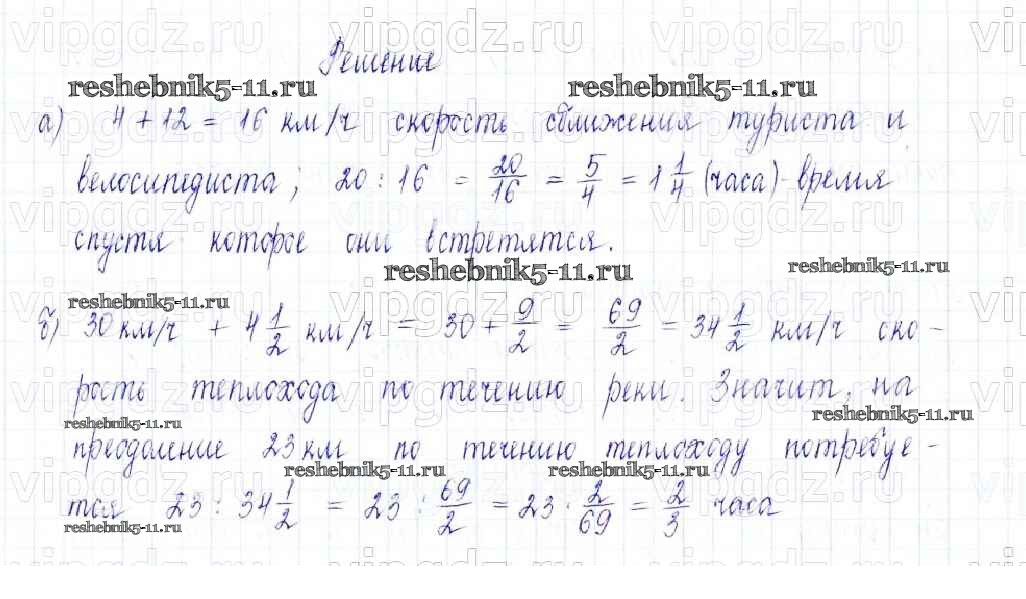 vipgdz.ru vipgdz.ru vipgdz.ru vipgdz.ru vi
Решение
reshebnik5-11.ru reshebnik5-11.ru
а) 4 + 12 = 16 км/ч скорость сближения туриста и
велосипедиста; 20 : 16 = 20/16 = 5/4 = 1 1/4 (часа) - время
спустя которое они встретятся.
reshebnik5-11.ru reshebnik5-11.ru
reshebnik5-11.ru
б) 30 км/ч + 4 1/2 км/ч = 30 + 9/2 = 69/2 = 34 1/2 км/ч ско-
рость теплохода по течению реки. Значит, на
reshebnik5-11.ru reshebnik5-11.ru
преодоление 23 км по течению теплоходу потребуе-
reshebnik5-11.ru reshebnik5-11.ru
тся 23 : 34 1/2 = 23 : 69/2 = 23 · 2/69 = 2/3 часа
reshebnik5-11.ru